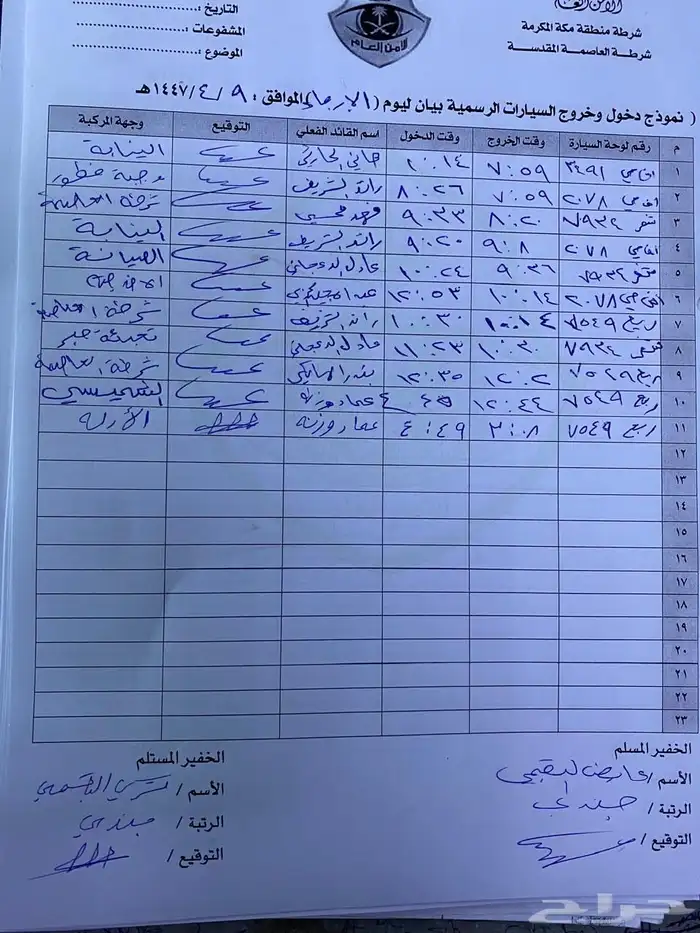 الأمن العام
شرطة منطقة مكة المكرمة
شرطة العاصمة المقدسة
التاريخ :
المشفوعات :
الموضوع :
الأمن العام
( نموذج دخول وخروج السيارات الرسمية بيان ليوم ( الاربعاء الموافق : ٩ / ٤ / ١٤٤٧هـ
م رقم لوحة السيارة وقت الخروج وقت الدخول اسم القائد الفعلي التوقيع وجهة المركبة
١ ٣٤٩١ ٧:٥٩ ١٠:١٤ هاني الحارثي النيابة
٢ ٢٠٧٨ ٧:٥٩ ٨:٢٦ رائد الشريف وجبة فطور
٣ ٧٩٣٤ ٨:٢٠ ٩:٣٣ فهد شرطة العاصمة
٤ ٢٠٧٨ ٩:٨ ٩:٢٠ رائد الشريف النيابة
٥ ٧٩٣٤ ٩:٣٦ ١٠:٢٤ عادل الدعجاني الصيانة
٦ ٢٠٧٨ ١٠:١٤ ١٢:٥٣
٧ ربع ٧٥٤٩ ١٠:١٤ ١٠:٣٠ رائد الشريف شرطة العاصمة
٨ ٧٩٣٤ ١٠:٣٠ ١١:٢٣ عادل الدعجاني
٩ ربع ٧٥٤٩ ١٢:٢ ١٢:٣٥ بندر المالكي شرطة العاصمة
١٠ ربع ٧٥٤٩ ١٢:٤٤ عماد وزنة الشميسي
١١ ربع ٧٥٤٩ ٣:٠٨ ٤:٤٩ عماد وزنه الأدلة
١٢
١٣
١٤
١٥
١٦
١٧
١٨
١٩
٢٠
٢١
٢٢
٢٣
الخفير المسلم
الأسم / عارض البقمي
الرتبة / جندي
التوقيع /
الخفير المستلم
الأسم / تركي البقمي
الرتبة / جندي
التوقيع /
حراج